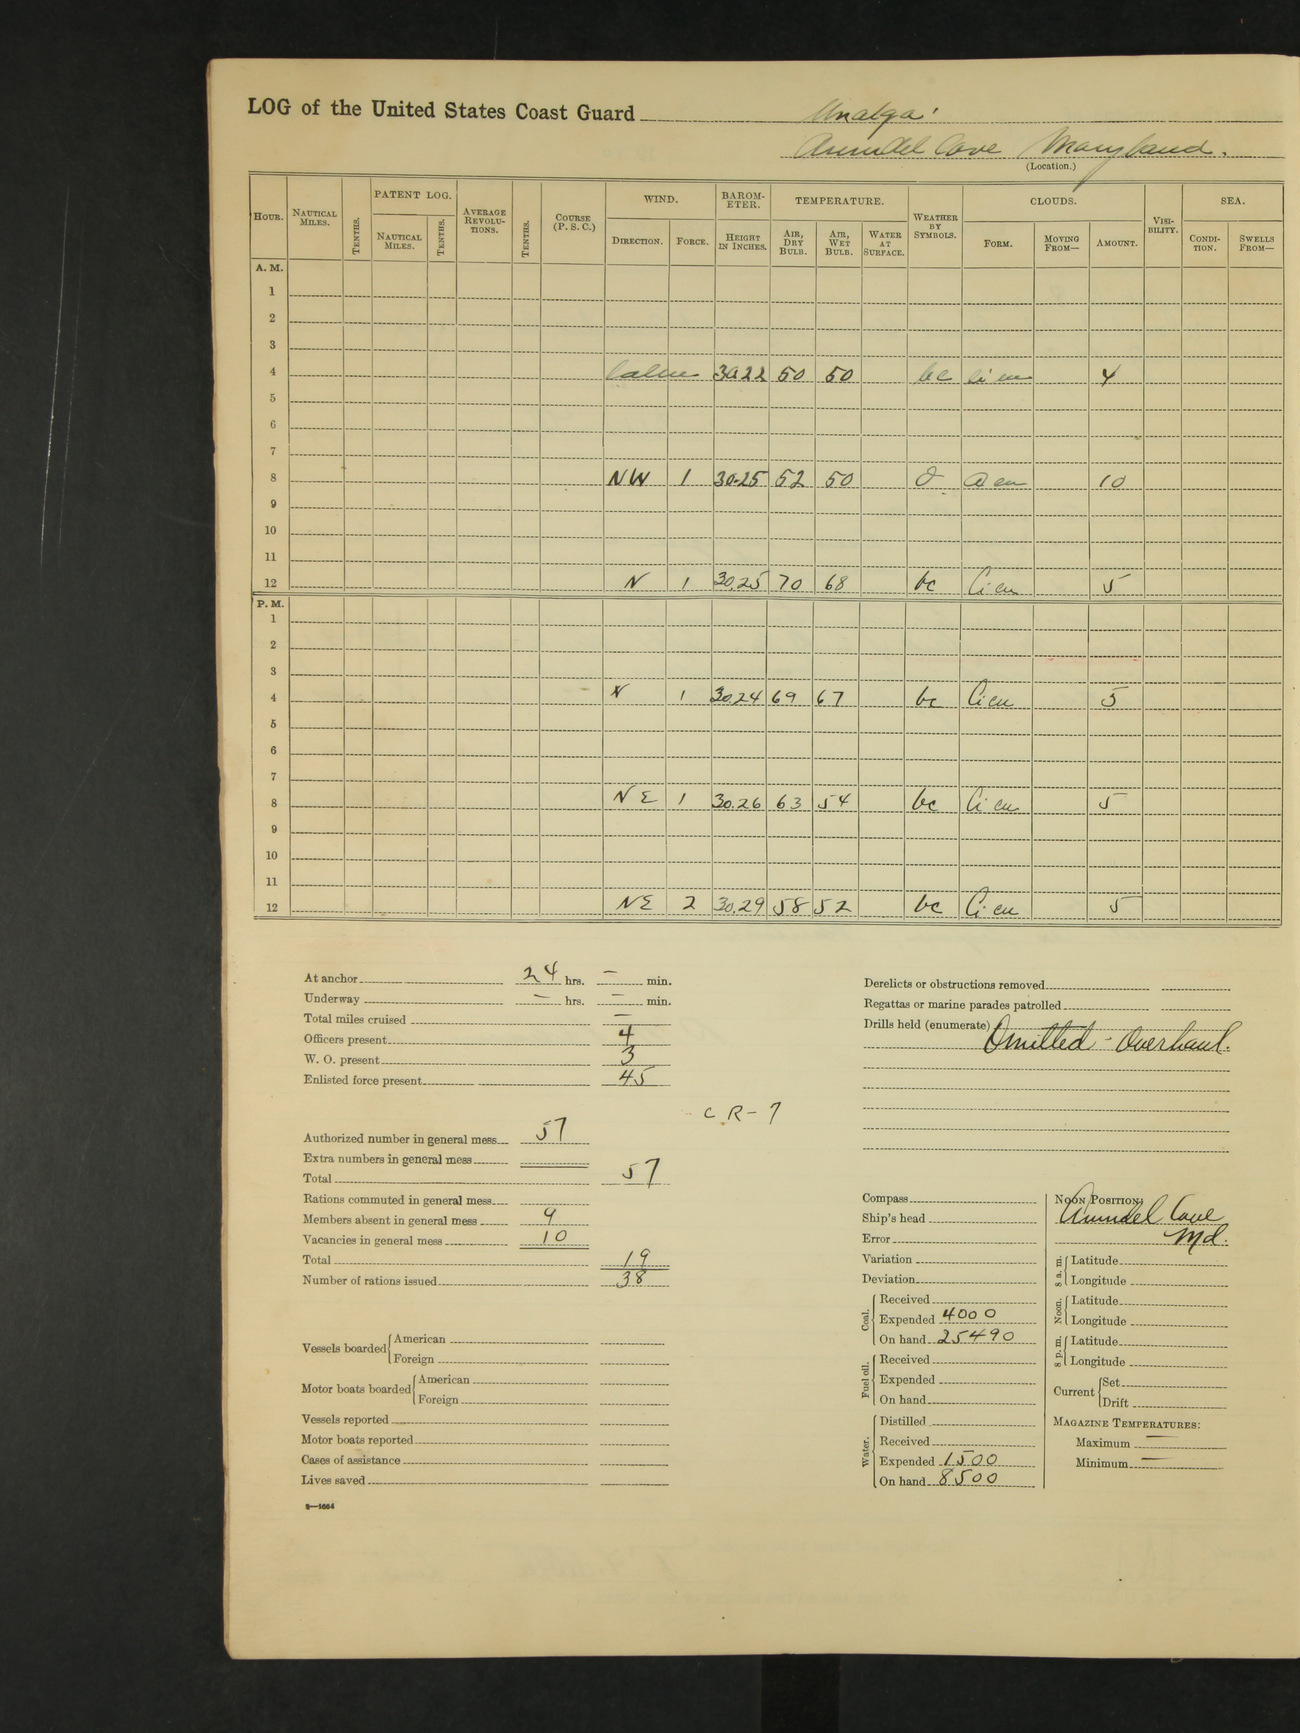 LOG of the United States Coast Guard Unalga
Arundel Cove Maryland.
(Location.)
HOUR. NAUTICAL MILES. TENTHS. PATENT LOG. NAUTICAL MILES. TENTHS. AVERAGE REVOLU-TIONS. TENTHS. COURSE (P. S. C.) WIND. DIRECTION. FORCE. BAROM-ETER. HEIGHT IN INCHES. TEMPERATURE. AIR, DRY BULB. AIR, WET BULB. WATER AT SURFACE. WEATHER BY SYMBOLS. CLOUDS. FORM. MOVING FROM— AMOUNT. VISI-BILITY. SEA. CONDI-TION. SWELLS FROM—
A. M.
1
2
3
4 Calm 30.22 50 50 bc Ci cu 4
5
6
7
8 NW 1 30.25 52 50 O cu 10
9
10
11
12 N 1 30.25 70 68 bc Ci cu 5
P. M.
1
2
3
4 N 1 30.24 69 67 bc Ci cu 5
5
6
7
8 NE 1 30.26 63 54 bc Ci cu 5
9
10
11
12 NE 2 30.29 58 52 bc Ci cu 5
At anchor 24 hrs. — min.
Underway — hrs. — min.
Total miles cruised —
Officers present 4
W. O. present 3
Enlisted force present 45
C R - 7
Authorized number in general mess 57
Extra numbers in general mess
Total 57
Rations commuted in general mess
Members absent in general mess 9
Vacancies in general mess 10
Total 19
Number of rations issued 38
Vessels boarded American
Foreign
Motor boats boarded American
Foreign
Vessels reported
Motor boats reported
Cases of assistance
Lives saved
2—1664
Derelicts or obstructions removed
Regattas or marine parades patrolled
Drills held (enumerate)
Omitted - Overhaul.
Compass
Ship's head
Error
Variation
Deviation
Coal. Received
Expended 4000
On hand 25490
Fuel oil. Received
Expended
On hand
Water. Distilled
Received
Expended 1500
On hand 8500
NOON POSITION:
Arundel Cove
Md.
8 a. m. Latitude
Longitude
Noon. Latitude
Longitude
8 p. m. Latitude
Longitude
Current Set
Drift
MAGAZINE TEMPERATURES:
Maximum —
Minimum —